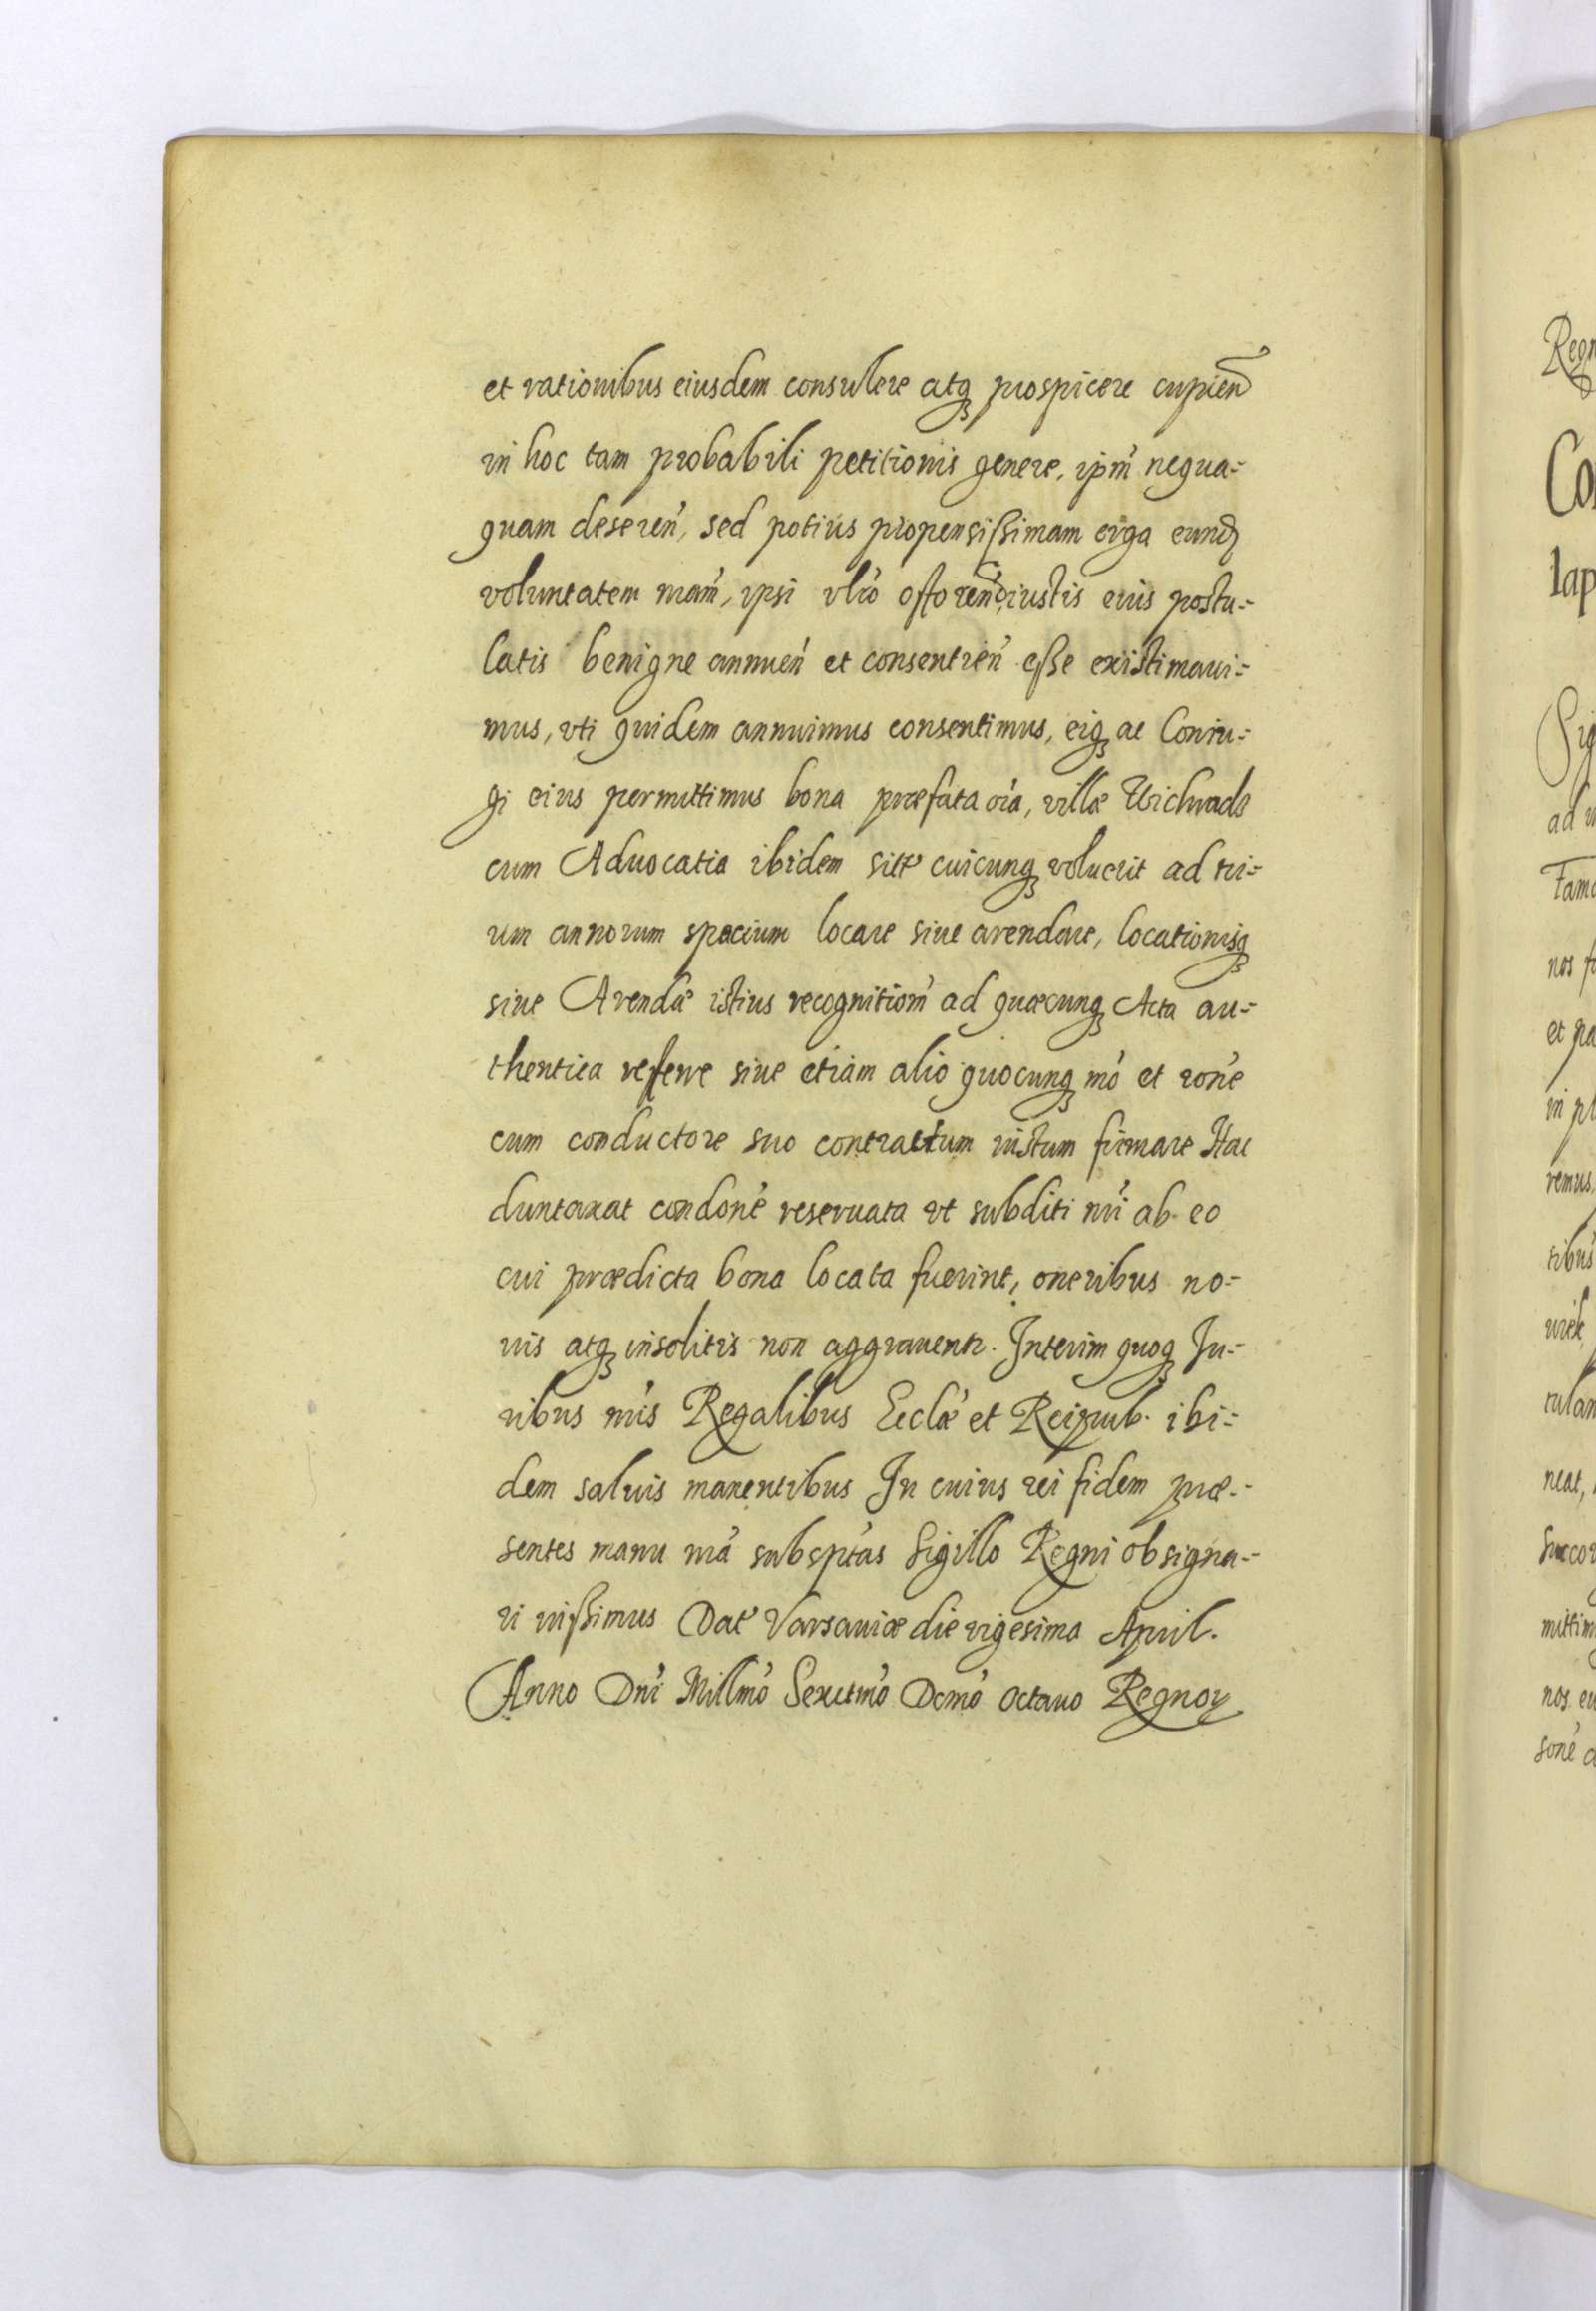 et rationibus eiusdem consulere atq prospicere cupien
in hoc tam probabili petitionis genere, ipm̃ nequa-
quam deseren̄, sed potius propensißimam erga eund
voluntatem nram̃, ipsi vltro iustis eius postu-
latis benigne annuen̄ et consentien̄ eße existimaui-
mus, vti quidem annuimus consentimus, eiq ac Coniu-
gi eius permittimus bona præfata oīa, villæ
cum Aduocatia ibidem sitt cuicunq voluerit ad tri-
um annorum spacium locare siue arendare, locationisq
siue Arendæ istius recognitiom̃ ad quæcunq Acta au-
thentica referre siue etiam alio quocunq mõ et rone
cum conductore suo contractum iustum firmare Hac
duntaxat condone reseruata vt subditi nri ab eo
cui prædicta bona locata fuerint, oneribus no-
uis atq insolitis non aggrauentr. Interim quoq Ju-
ribus nris Regalibus Ecclæ et Reipub. ibi-
dem saluis manentibus In cuius rei fidem præ-
sentes manu nra subsptas Sigillo Regni obsigna-
ri iußimus Dat Varsauiæ die vigesima April.
Anno Dni Millmo Sexctmo Dcmo octauo Regnoꝝ
Regn
Co
lap
Sig
ad
Fam
nos f
et pa
in pl
remus
tibus
wiek
tulan
neat,
Succor
mittim
nos eu
sone